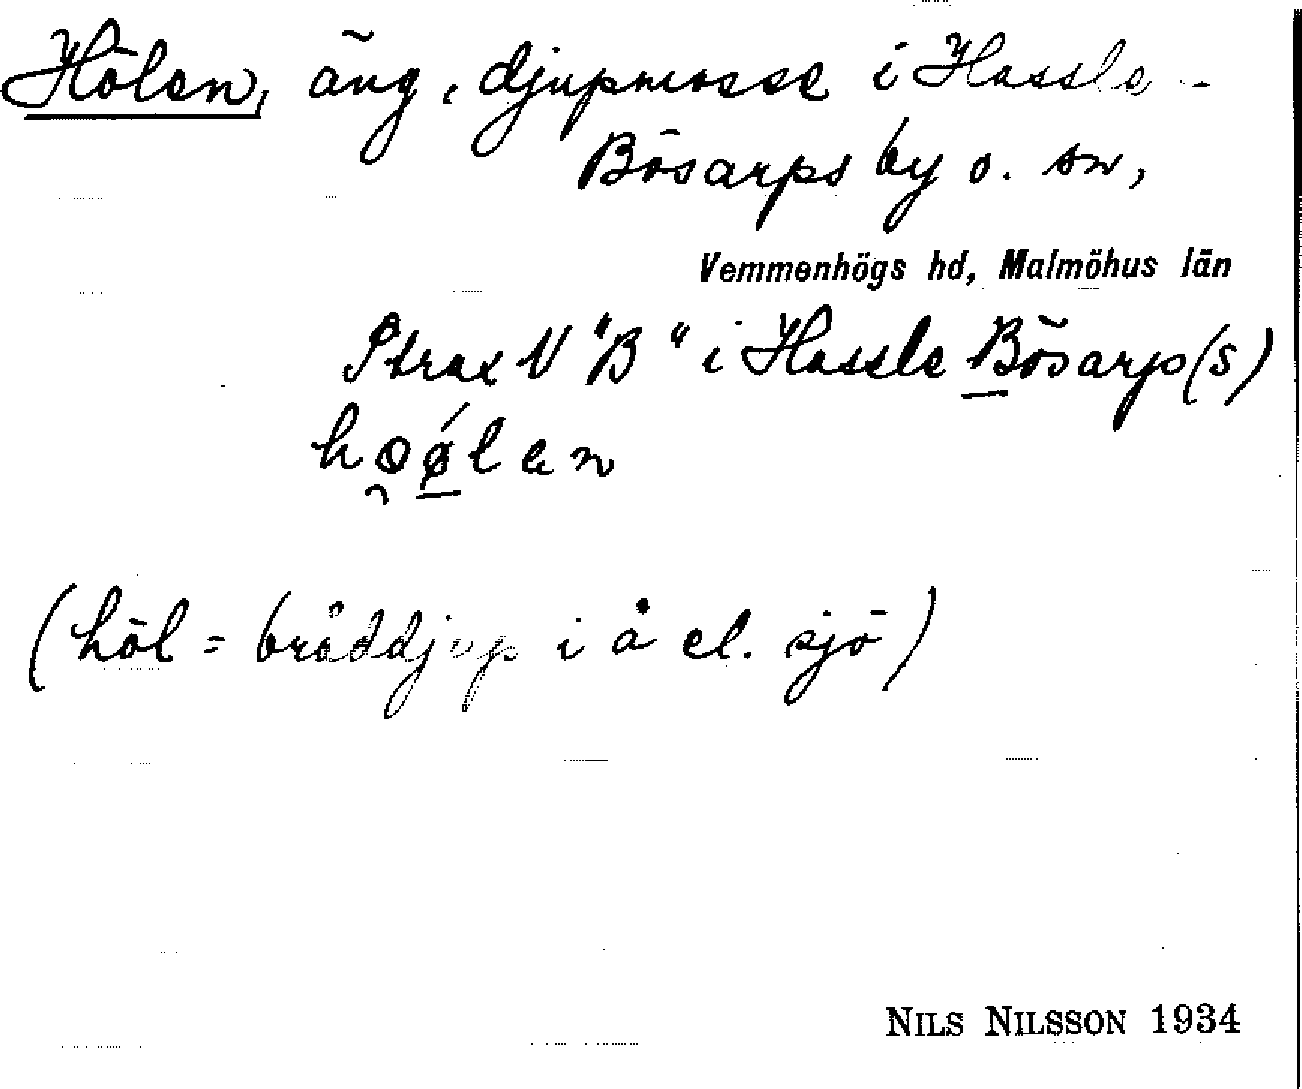 Hölen, äng, djupmosse i Hassle-
Bösarps by o. sn,
Vemmenhögs hd, Malmöhus län
Strax V "B" i Hassle Bösarp(s)
ho̯ǿlen
(höl = bråddjup i å el. sjö)
NILS NILSSON 1934